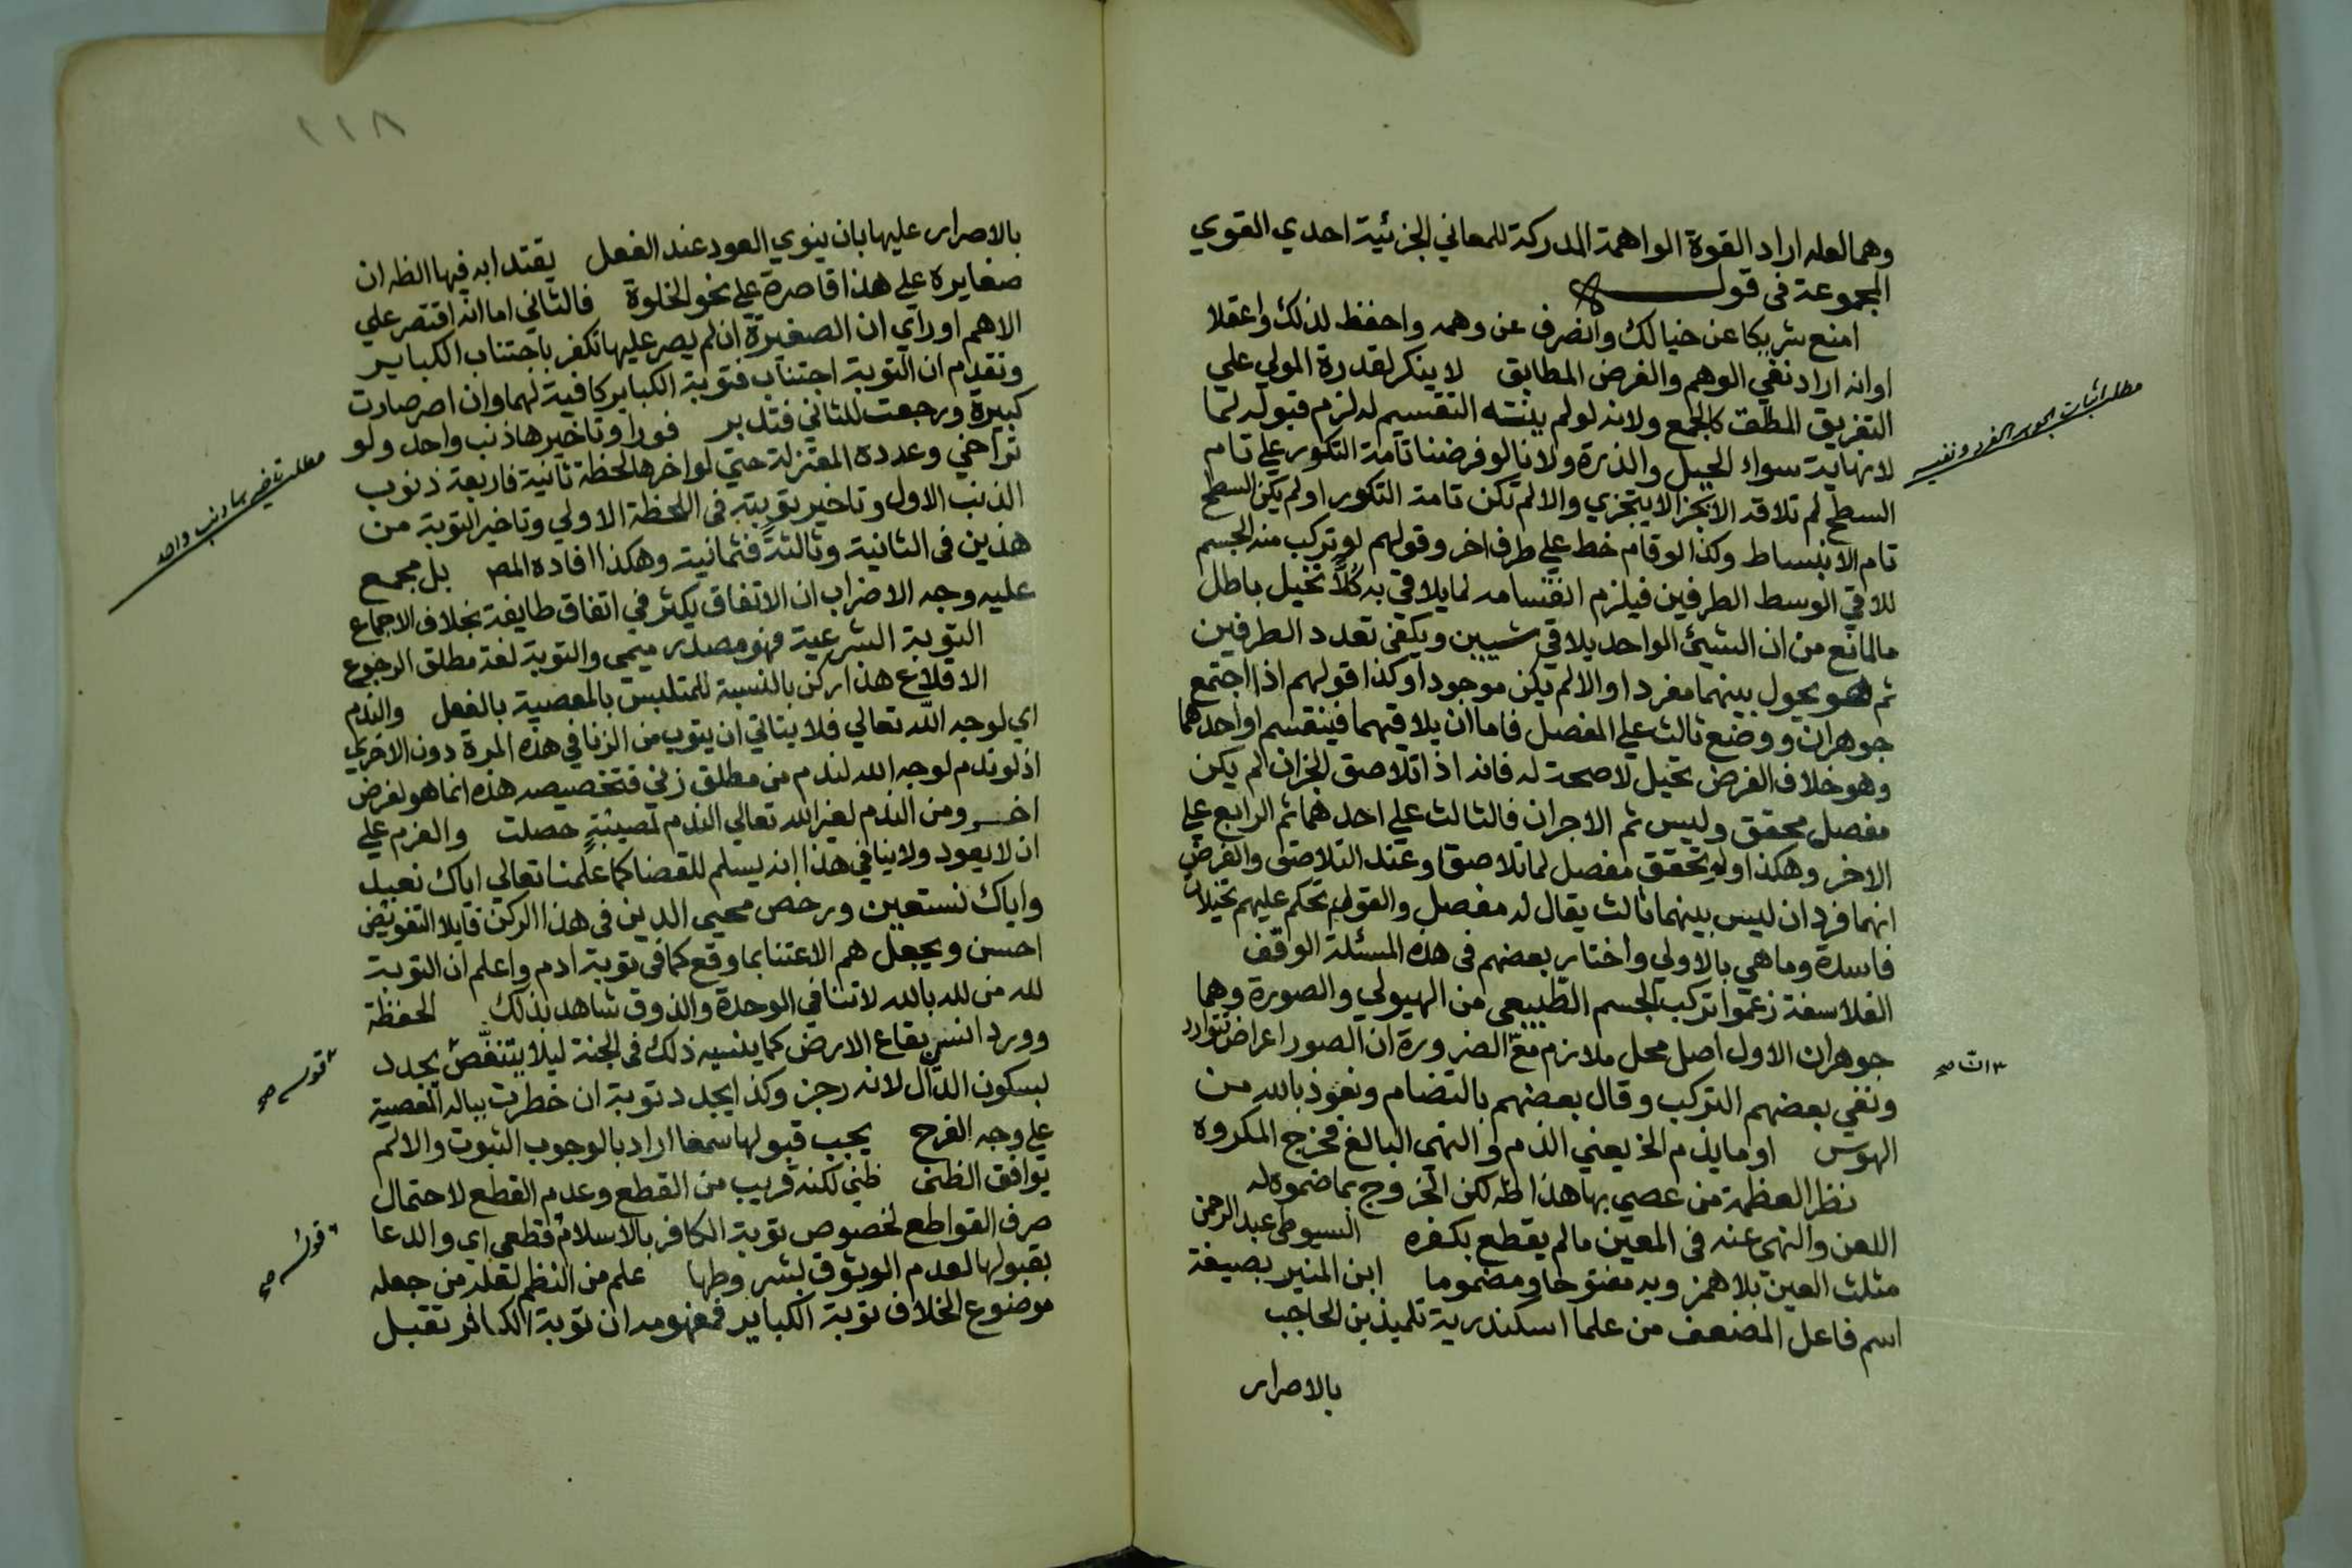 وهما لعله اراد القوة الواهمة المدركة للمعاني الجزئية احدي القوي
المجموعة في قوله
امنع شريكا عن خيالك وانصرف عن وهمه واحفظ لذلك واعقلا
اوانه اراد نفي الوهم والفرض المطابق لا ينكر لقدرة المولي علي
التفريق المطلق كالجمع ولانه لولم ينته التقسيم له لزم قبوله لما
لانهاية سواء الجبل والذرة ولانا لو فرضنا تامة التكور علي تام
السطح لم تلاقه الا بجزء لا يتجزي والا لم تكن تامة التكور اولم يكن السطح
تام الانبساط وكذا لو قام خط علي طرف اخر وقولهم لو تركب منه الجسم
للاقي الوسط الطرفين فيلزم انقسامه لما يلاقي به كلا تخيل باطل
مالمانع من ان الشيئ الواحد يلاقي شيين ويكفي تعدد الطرفين
ثم هو يحول بينهما مفردا والا لم يكن موجودا وكذا قولهم اذا اجتمع
جوهران ووضع ثالث علي المفصل فاما ان يلاقيهما فينقسم او احدهما
وهو خلاف الفرض تخيل لا صحة له فانه اذا تلاصق الجزان لم يكن
مفصل محقق وليس ثم الاجران فالثالث علي احدهما ثم الرابع علي
الاخر وهكذا ولو تحقق مفصل لما تلاصقا وعند التلاصق والفرض
انهما فردان ليس بينهما ثالث يقال له مفصل والقوم تحكم عليهم تخيلات
فاسدة وماهي بالاولي واختار بعضهم في هذه المسئلة الوقف
الفلاسفة زعموا تركب الجسم الطبيعي من الهيولي والصورة وهما
جوهران الاول اصل محل ملازم مع الضرورة ان الصور اعراض تتوارد
ونفي بعضهم التركب وقال بعضهم بالتضام ونعوذ بالله من
الهوس اوما يذم الخ يعني الذم والنهي البالغ فخرج المكروه
نظرا لعظمة من عصي بها هذا ظه لكن الخروج بما ضموه له
اللعن والنهي عنه في المعين مالم يقطع بكفره السيوطي عبد الرحمن
مثلث العين بلا همز وبه مفتوحا ومضموما ابن المنير بصيغة
اسم فاعل المضعف من علما اسكندرية تلميذ بن الحاجب
بالاصرار
مطلب اثبات الجوهر الفرد ونفيه
١١٨
بالاصرار عليها بان ينوي العود عند الفعل يقتدا به فيها الظه ان
صغايره علي هذا قاصرة علي نحو الخلوة فالثاني اما انه اقتصر علي
الاهم او راي ان الصغيرة ان لم يصر عليها تكفر باجتناب الكباير
وتقدم ان التوبة اجتناب فتوبة الكباير كافية لهما وان اصر صارت
كبيرة ورجعت للثاني فتدبر فورا وتاخيرها ذنب واحد ولو
تراخي وعدده المعتزلة حتي لو اخرها لحظة ثانية فاربعة ذنوب
الذنب الاول وتاخير توبته في اللحظة الاولي وتاخير التوبة من
هذين في الثانية وثالثة فثمانية وهكذا افاده المص بل مجمع
عليه وجه الاضراب ان الاتفاق يكثر في اتفاق طايفة بخلاف الاجماع
التوبة الشرعية فهو مصدر ميمي والتوبة لغة مطلق الرجوع
الاقلاع هذا ركن بالنسبة للمتلبس بالمعصية بالفعل والندم
اي لوجه الله تعالي فلا يتاتي ان يتوب من الزنا في هذه المرة دون الاخري
اذ لو ندم لوجه الله لندم من مطلق زني فتخصيصه هذه انما هو لغرض
اخر ومن الندم لغير الله تعالي الندم لمصيبة حصلت والعزم علي
ان لا يعود ولا ينافي هذا انه يسلم للقضا كما علمنا تعالي اياك نعبد
واياك نستعين ورخص محيي الدين في هذا الركن قايلا التفويض
احسن ويجعل هم الاعتنا بما وقع كما في توبة ادم واعلم ان التوبة
لله من لله بالله لا تنافي الوحدة والذوق شاهد بذلك الحفظة
وورد انسي بقاع الارض كما ينسيه ذلك في الجنة ليلا يتنغص يجدد
بسكون الدال لانه رجز وكذا يجدد توبة ان خطرت بباله المعصية
علي وجه الفرح يجب قبولها سمعا اراد بالوجوب الثبوت والا لم
يوافق الظني ظني لكنه قريب من القطع وعدم القطع لاحتمال
صرف القواطع لخصوص توبة الكافر بالاسلام قطعي اي والدعا
بقبولها لعدم الوثوق بشروطها علم من النظم لعله من جعله
موضوع الخلاف توبة الكباير فمفهومه ان توبة الكافر تقبل
مطلب تاخيرها ذنب واحد
قوله صح
قوله صح